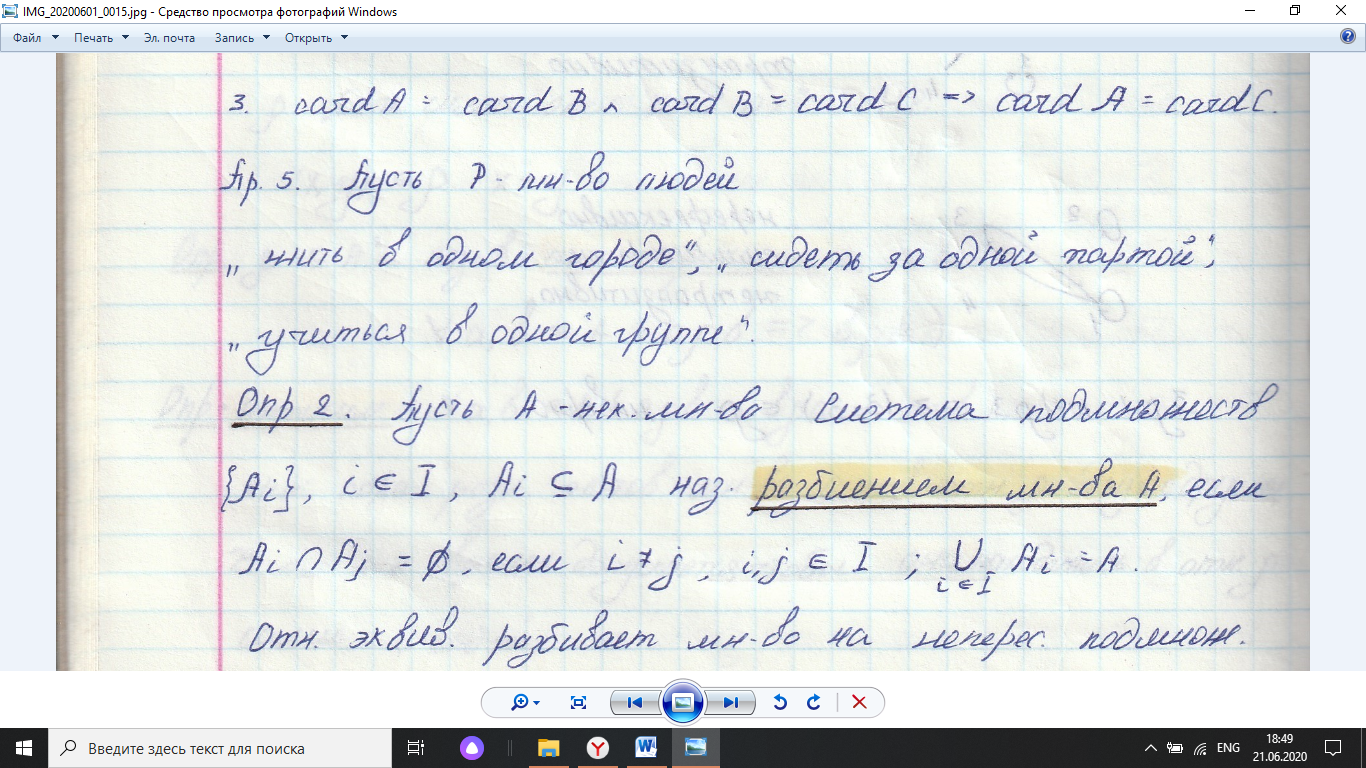 IMG_20200601_0015.jpg - Средство просмотра фотографий Windows
Файл Печать Эл. почта Запись Открыть
3. card A = card B ∧ card B = card C => card A = card C.
Пр. 5. Пусть P - мн-во людей
„жить в одном городе“, „сидеть за одной партой“,
„учиться в одной группе“.
Опр 2. Пусть A - нек. мн-во Система подмножеств
{Ai}, i ∈ I, Ai ⊆ A наз. разбиением мн-ва A, если
Ai ∩ Aj = ∅, если i ≠ j, i,j ∈ I ; ⋃ i∈I Ai = A.
Отн. эквив. разбивает мн-во на неперес. подмнож.
Введите здесь текст для поиска
ENG
18:49
21.06.2020